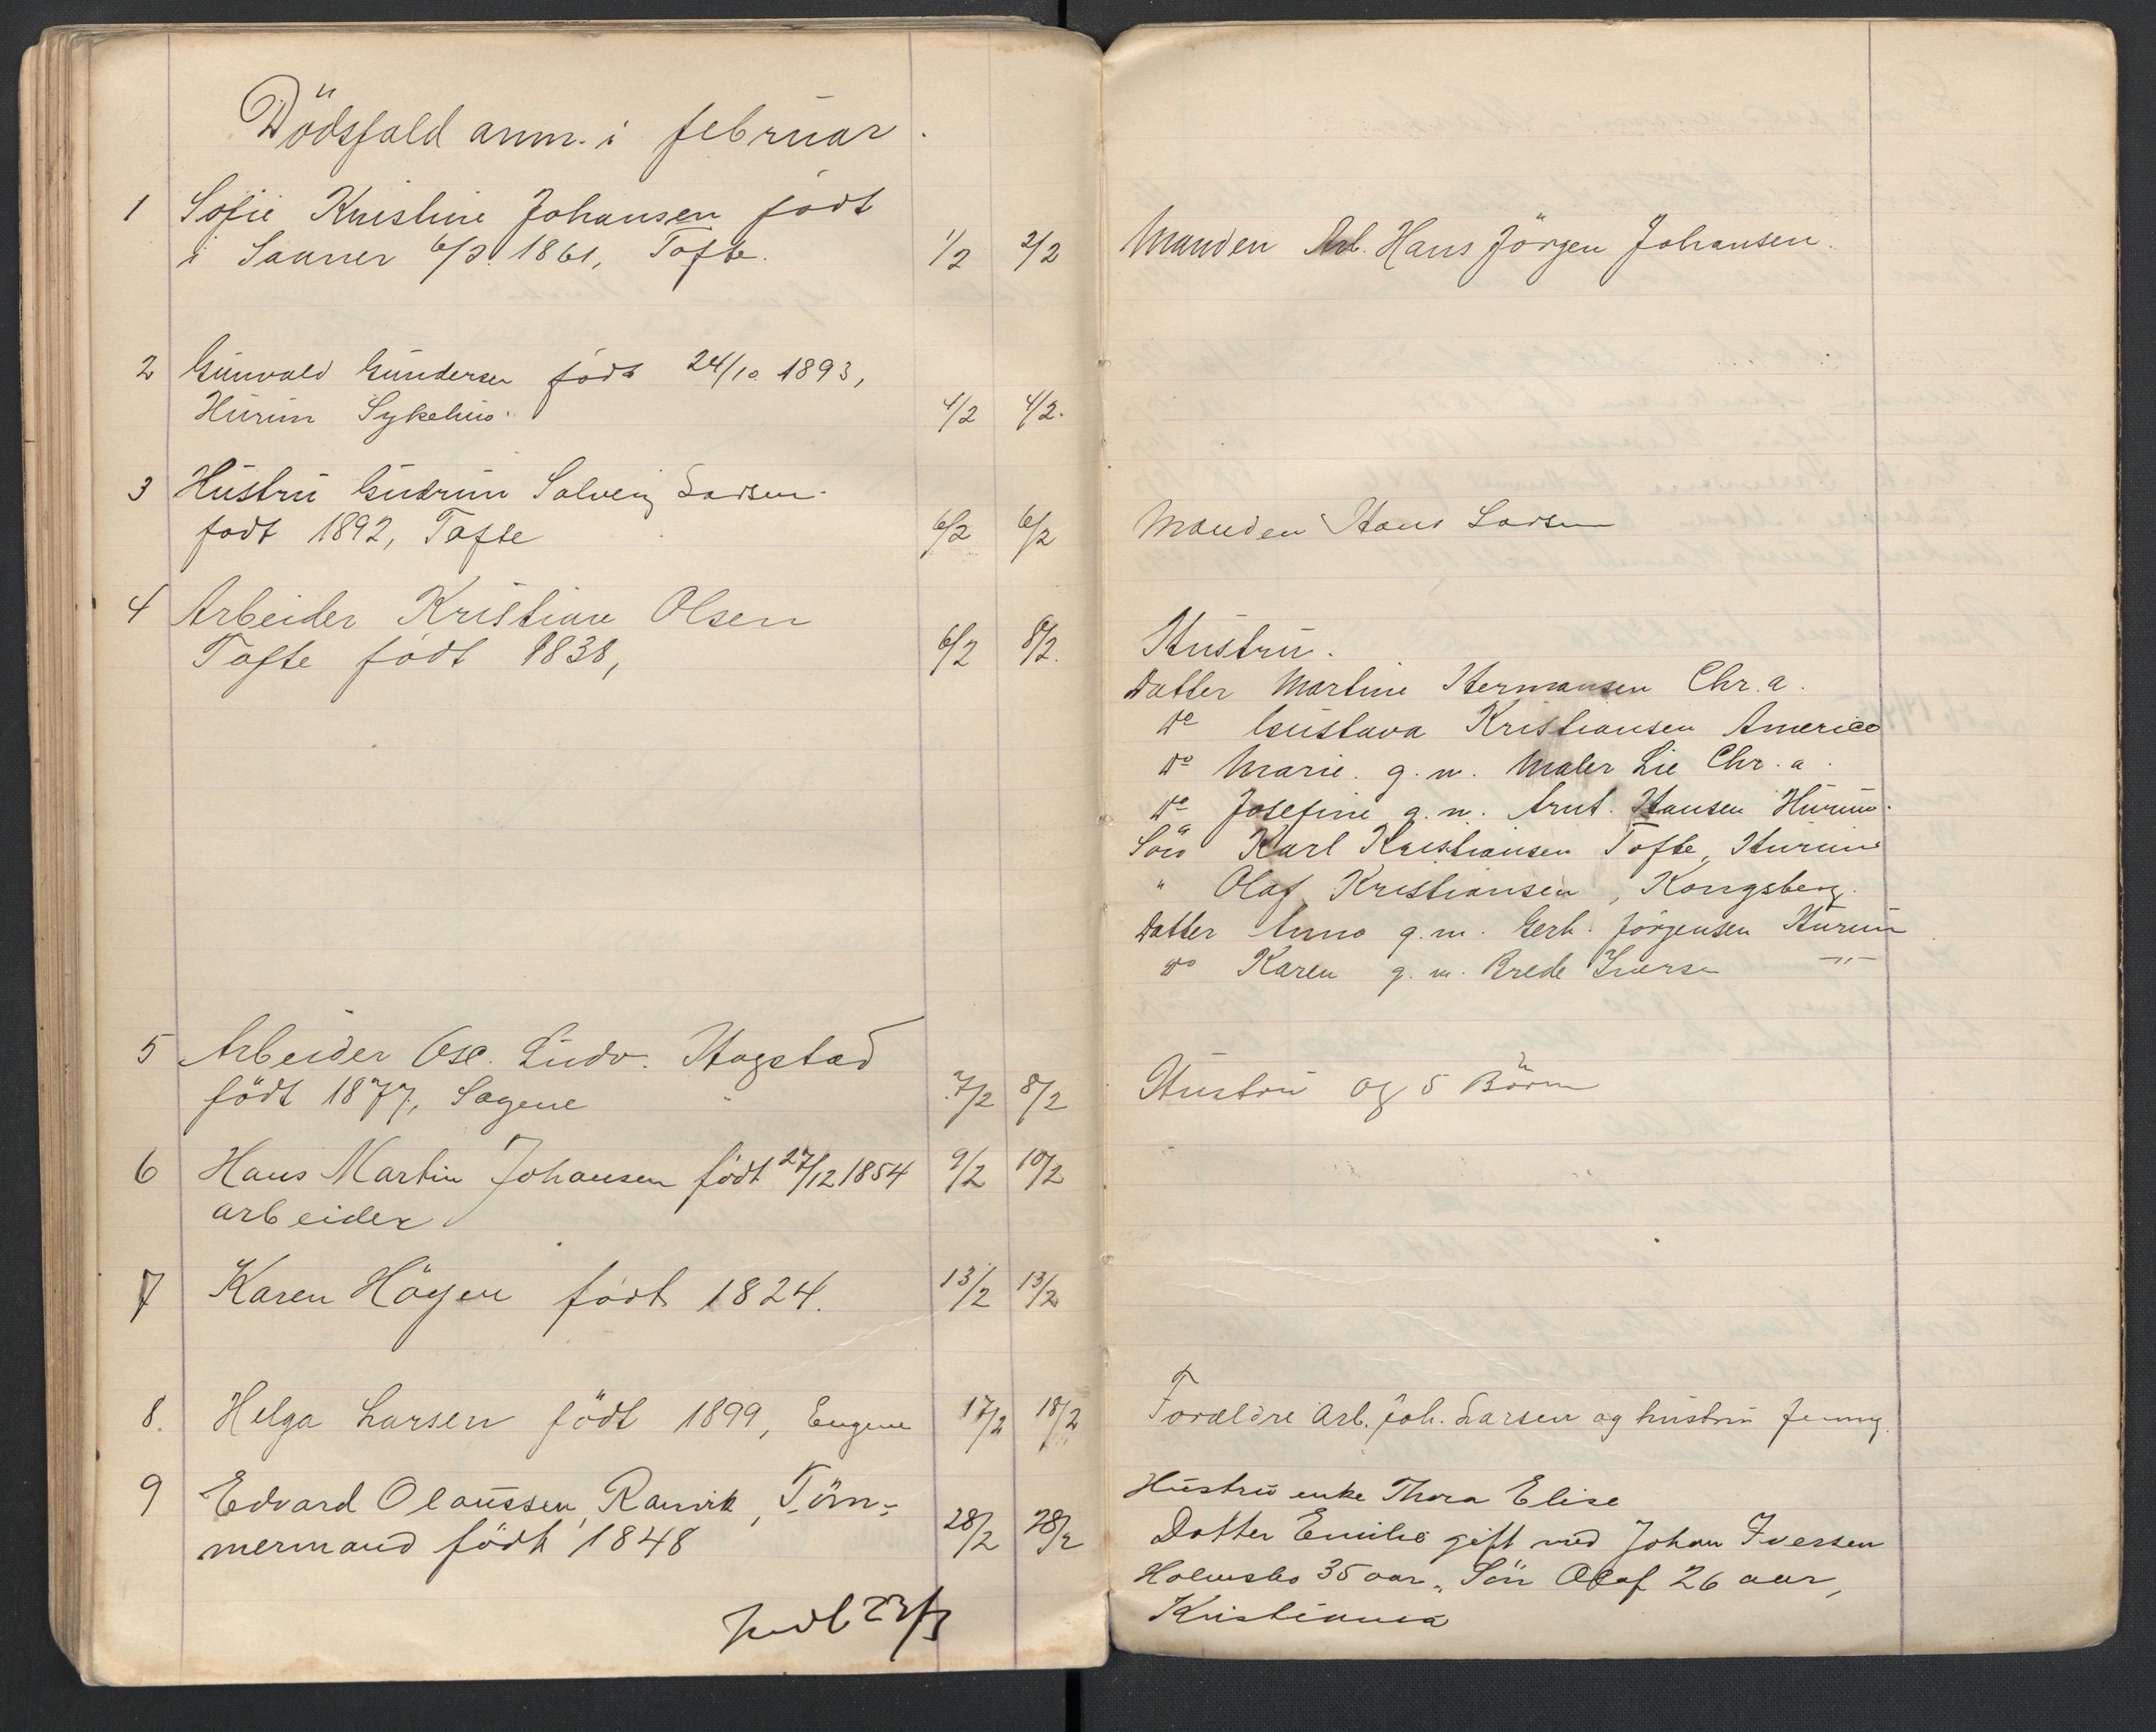 Dödsfald anm. i februar.
1 Sofie Kristine Johansen födt
i Saaner 6/3 1861, Tofte. 1/2 2/2 Manden Arb. Hans Jörgen Johansen.
2 Gunvald Gundersen födt 24/10 1893,
Hurum Sykehus. 4/2 4/2.
3 Hustru Gudrun Solveig Larsen
födt 1892, Tofte 6/2 6/2 Manden Hans Larsen
4 Arbeider Kristian Olsen
Tofte födt 1838, 6/2 8/2. Hustru.
Datter Martine Hermansen Chr.a.
Do Gustava Kristiansen America
Do Marie g.m. Maler Lie Chr.a.
Do Josefine g.m. Arnt. Hansen Hurum.
Sön Karl Kristiansen Tofte, Hurum
" Olaf Kristiansen, Kongsberg.
Datter Anna g.m. Gerh. Jörgensen Hurum
Do Karen g.m. Brede Iversen —"—
5 Arbeider Osc. Ludv. Hogstad
födt 1877, Sagene 7/2 8/2 Hustru og 5 Börn
6 Hans Martin Johansen födt 27/12 1854 9/2 10/2
arbeider
7 Karen Höyen födt 1824. 13/2 13/2
8. Helga Larsen födt 1899, Engene 17/2 18/2 Forældre Arb. Joh. Larsen og hustru Jenny.
9 Edvard Olaussen, Ramvik, Töm-
mermand födt 1848 28/2 28/2
Hustru enke Thora Elise
Datter Emilie gift med Johan Iversen
Holmsbo 35 aar, Sön Olaf 26 aar,
Kristiania
23/3